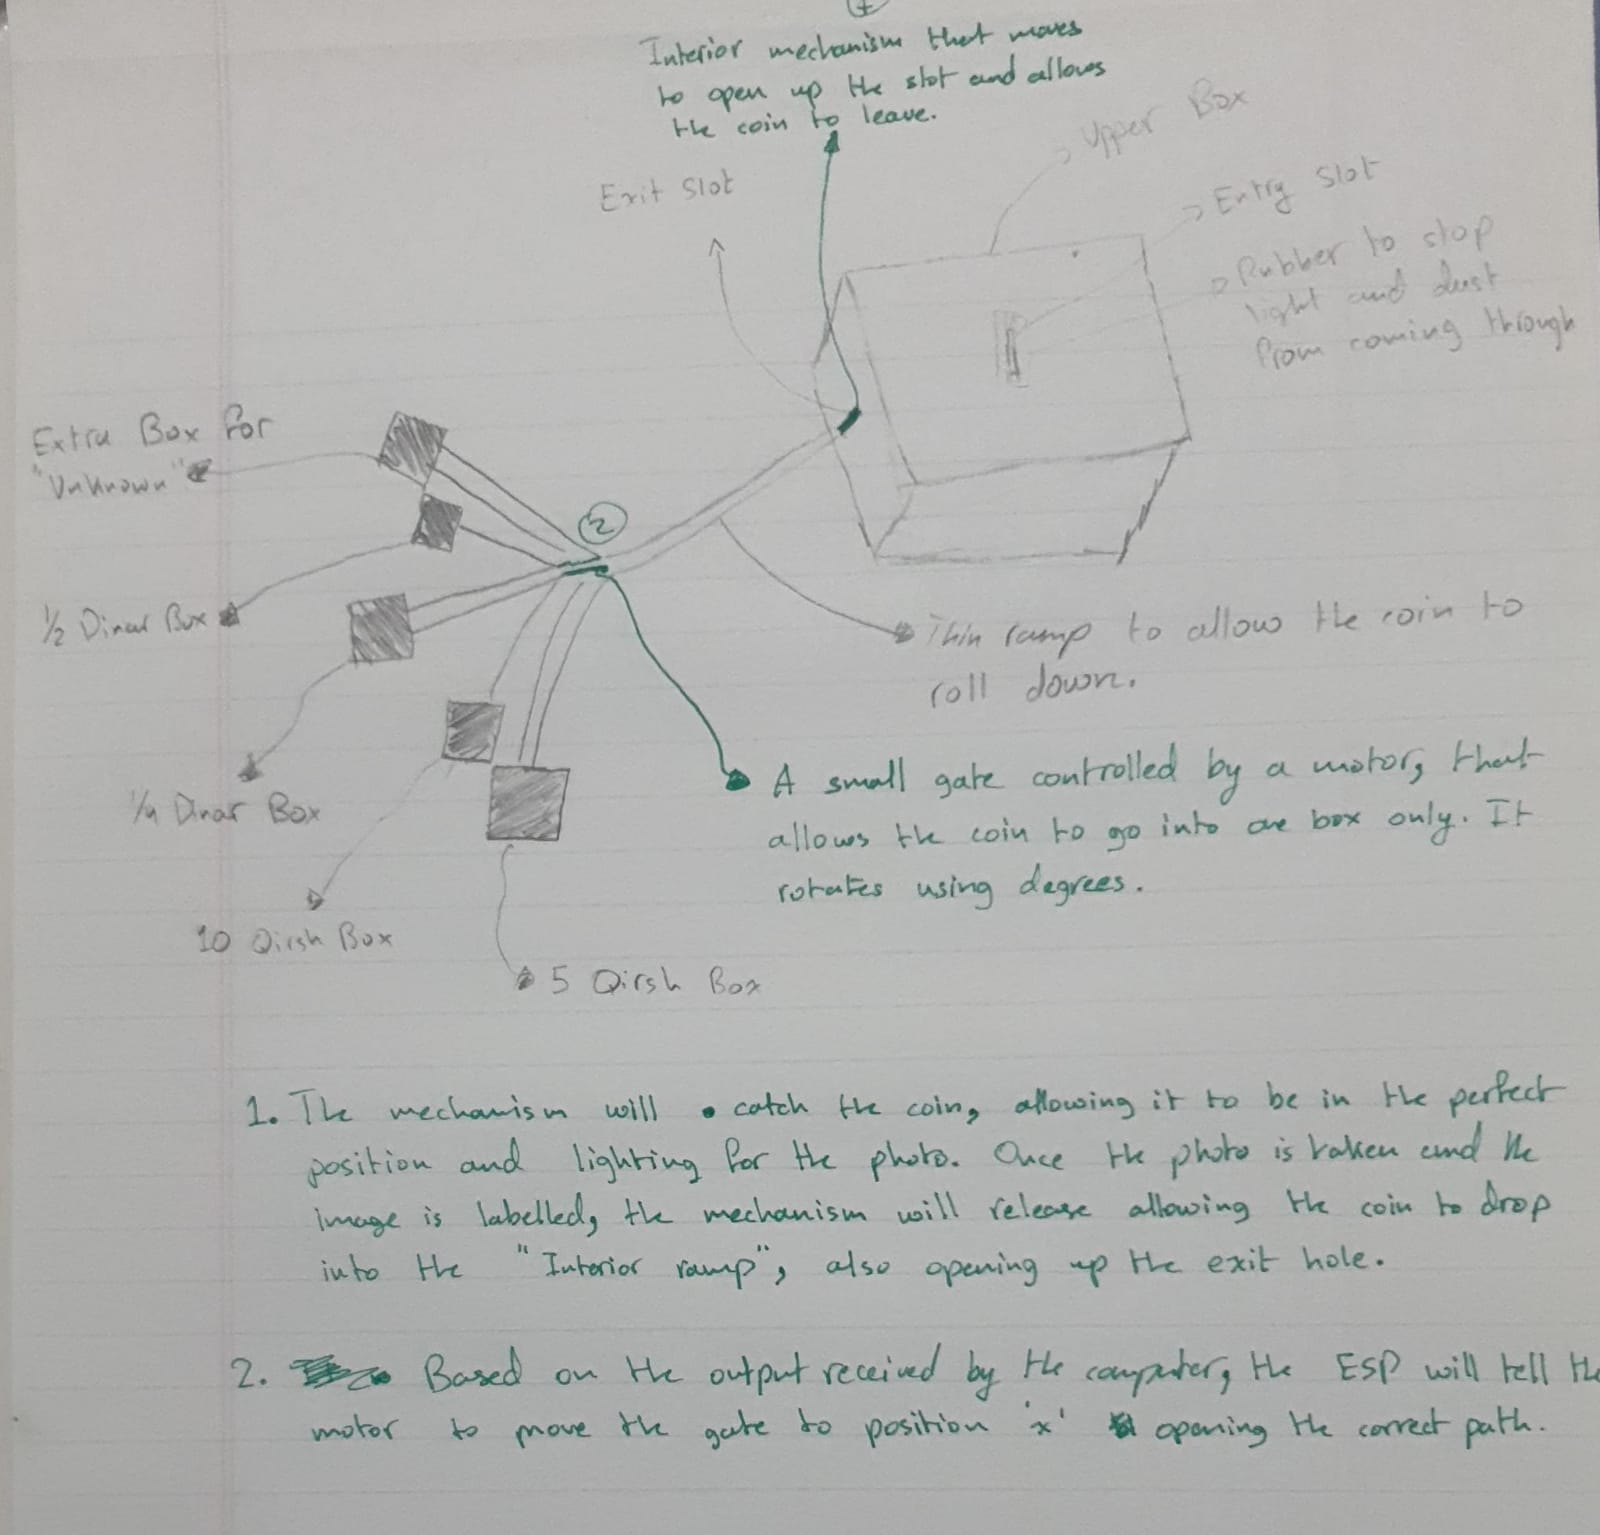 Interior mechanism that moves
to open up the slot and allows
the coin to leave.
Upper Box
Exit Slot
Entry Slot
Rubber to stop
light and dust
from coming through
Extra Box for
"Unknown"
2
1/2 Dinar Box
Thin ramp to allow the coin to
roll down.
1/4 Dinar Box
A small gate controlled by a motor, that
allows the coin to go into one box only. It
rotates using degrees.
10 Qirsh Box
5 Qirsh Box
1. The mechanism will catch the coin, allowing it to be in the perfect
position and lighting for the photo. Once the photo is taken and the
image is labelled, the mechanism will release allowing the coin to drop
into the "Interior ramp", also opening up the exit hole.
2. Based on the output received by the computer, the ESP will tell the
motor to move the gate to position 'x' opening the correct path.